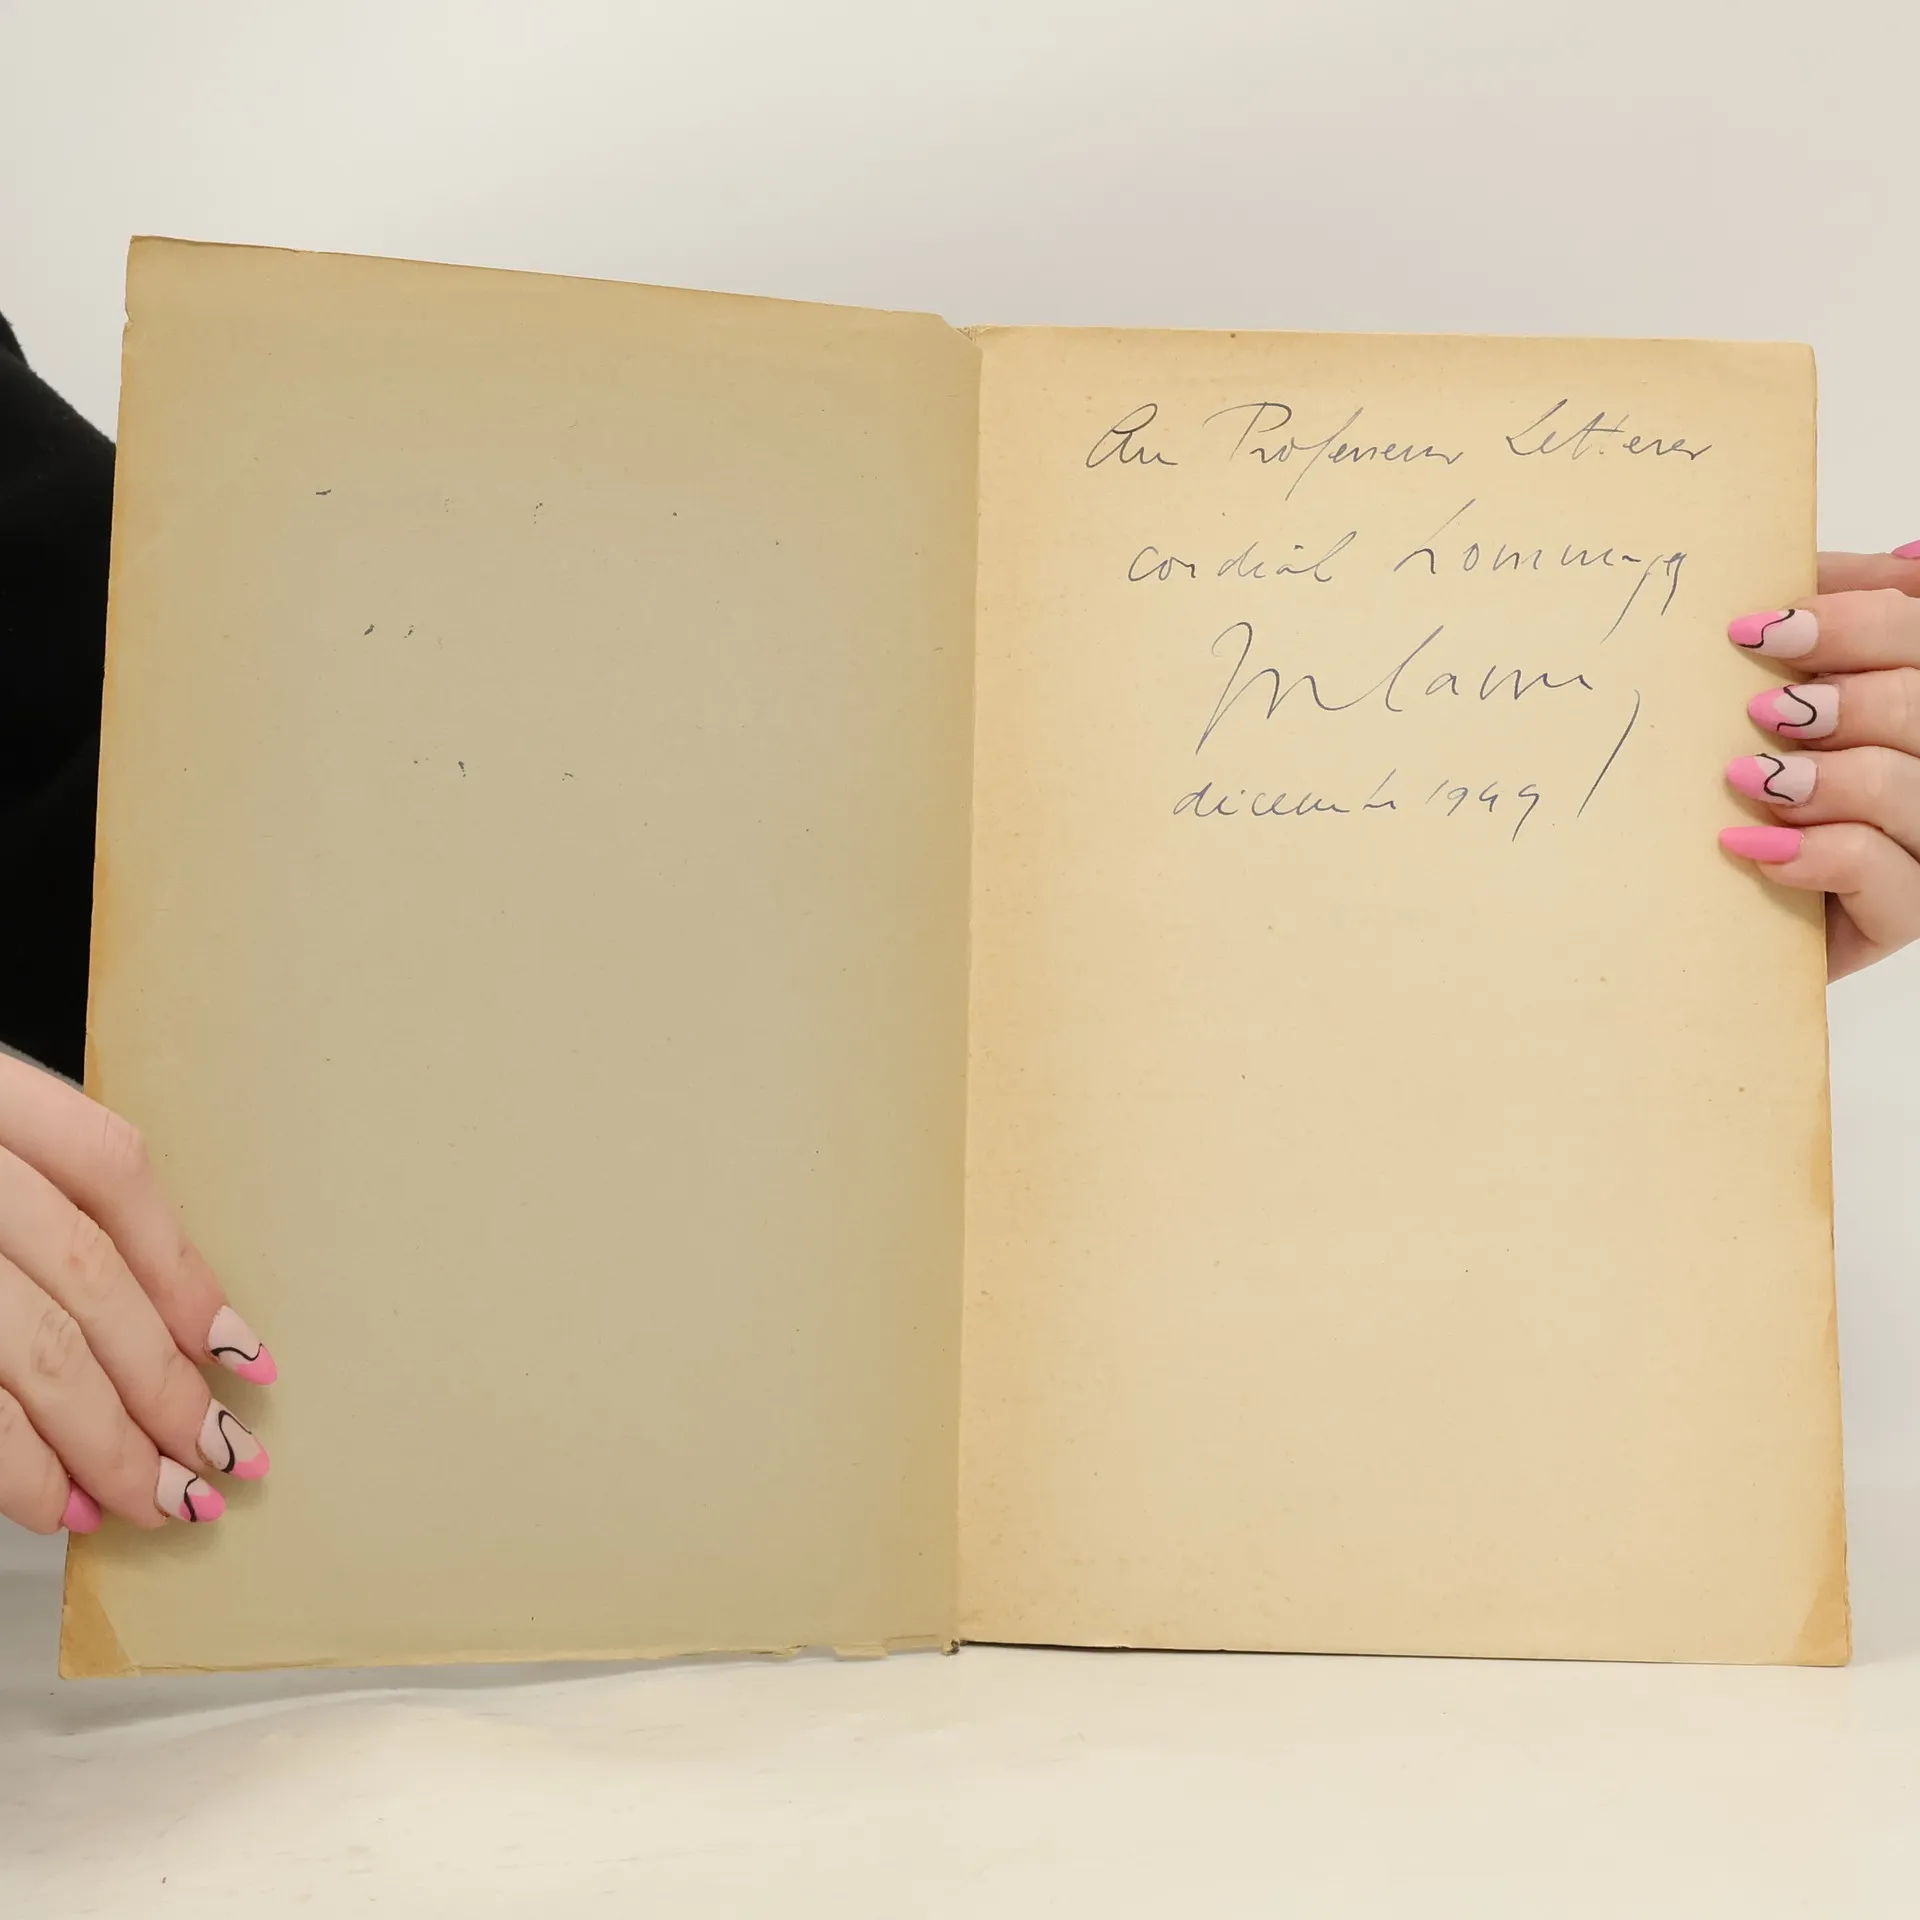 Au Professeur Letterer
cordial hommage
décembre 1949